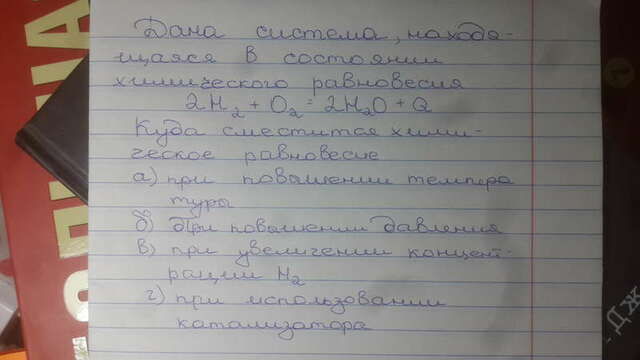 Дана система, находя-
щаяся в состоянии
химического равновесия
2H2 + O2 = 2H2O + Q
Куда сместится хими-
ческое равновесие
а) при повышении темпера
тура
б) при повышении давления
в) при увеличении концент-
рации H2
г) при использовании
катализатора